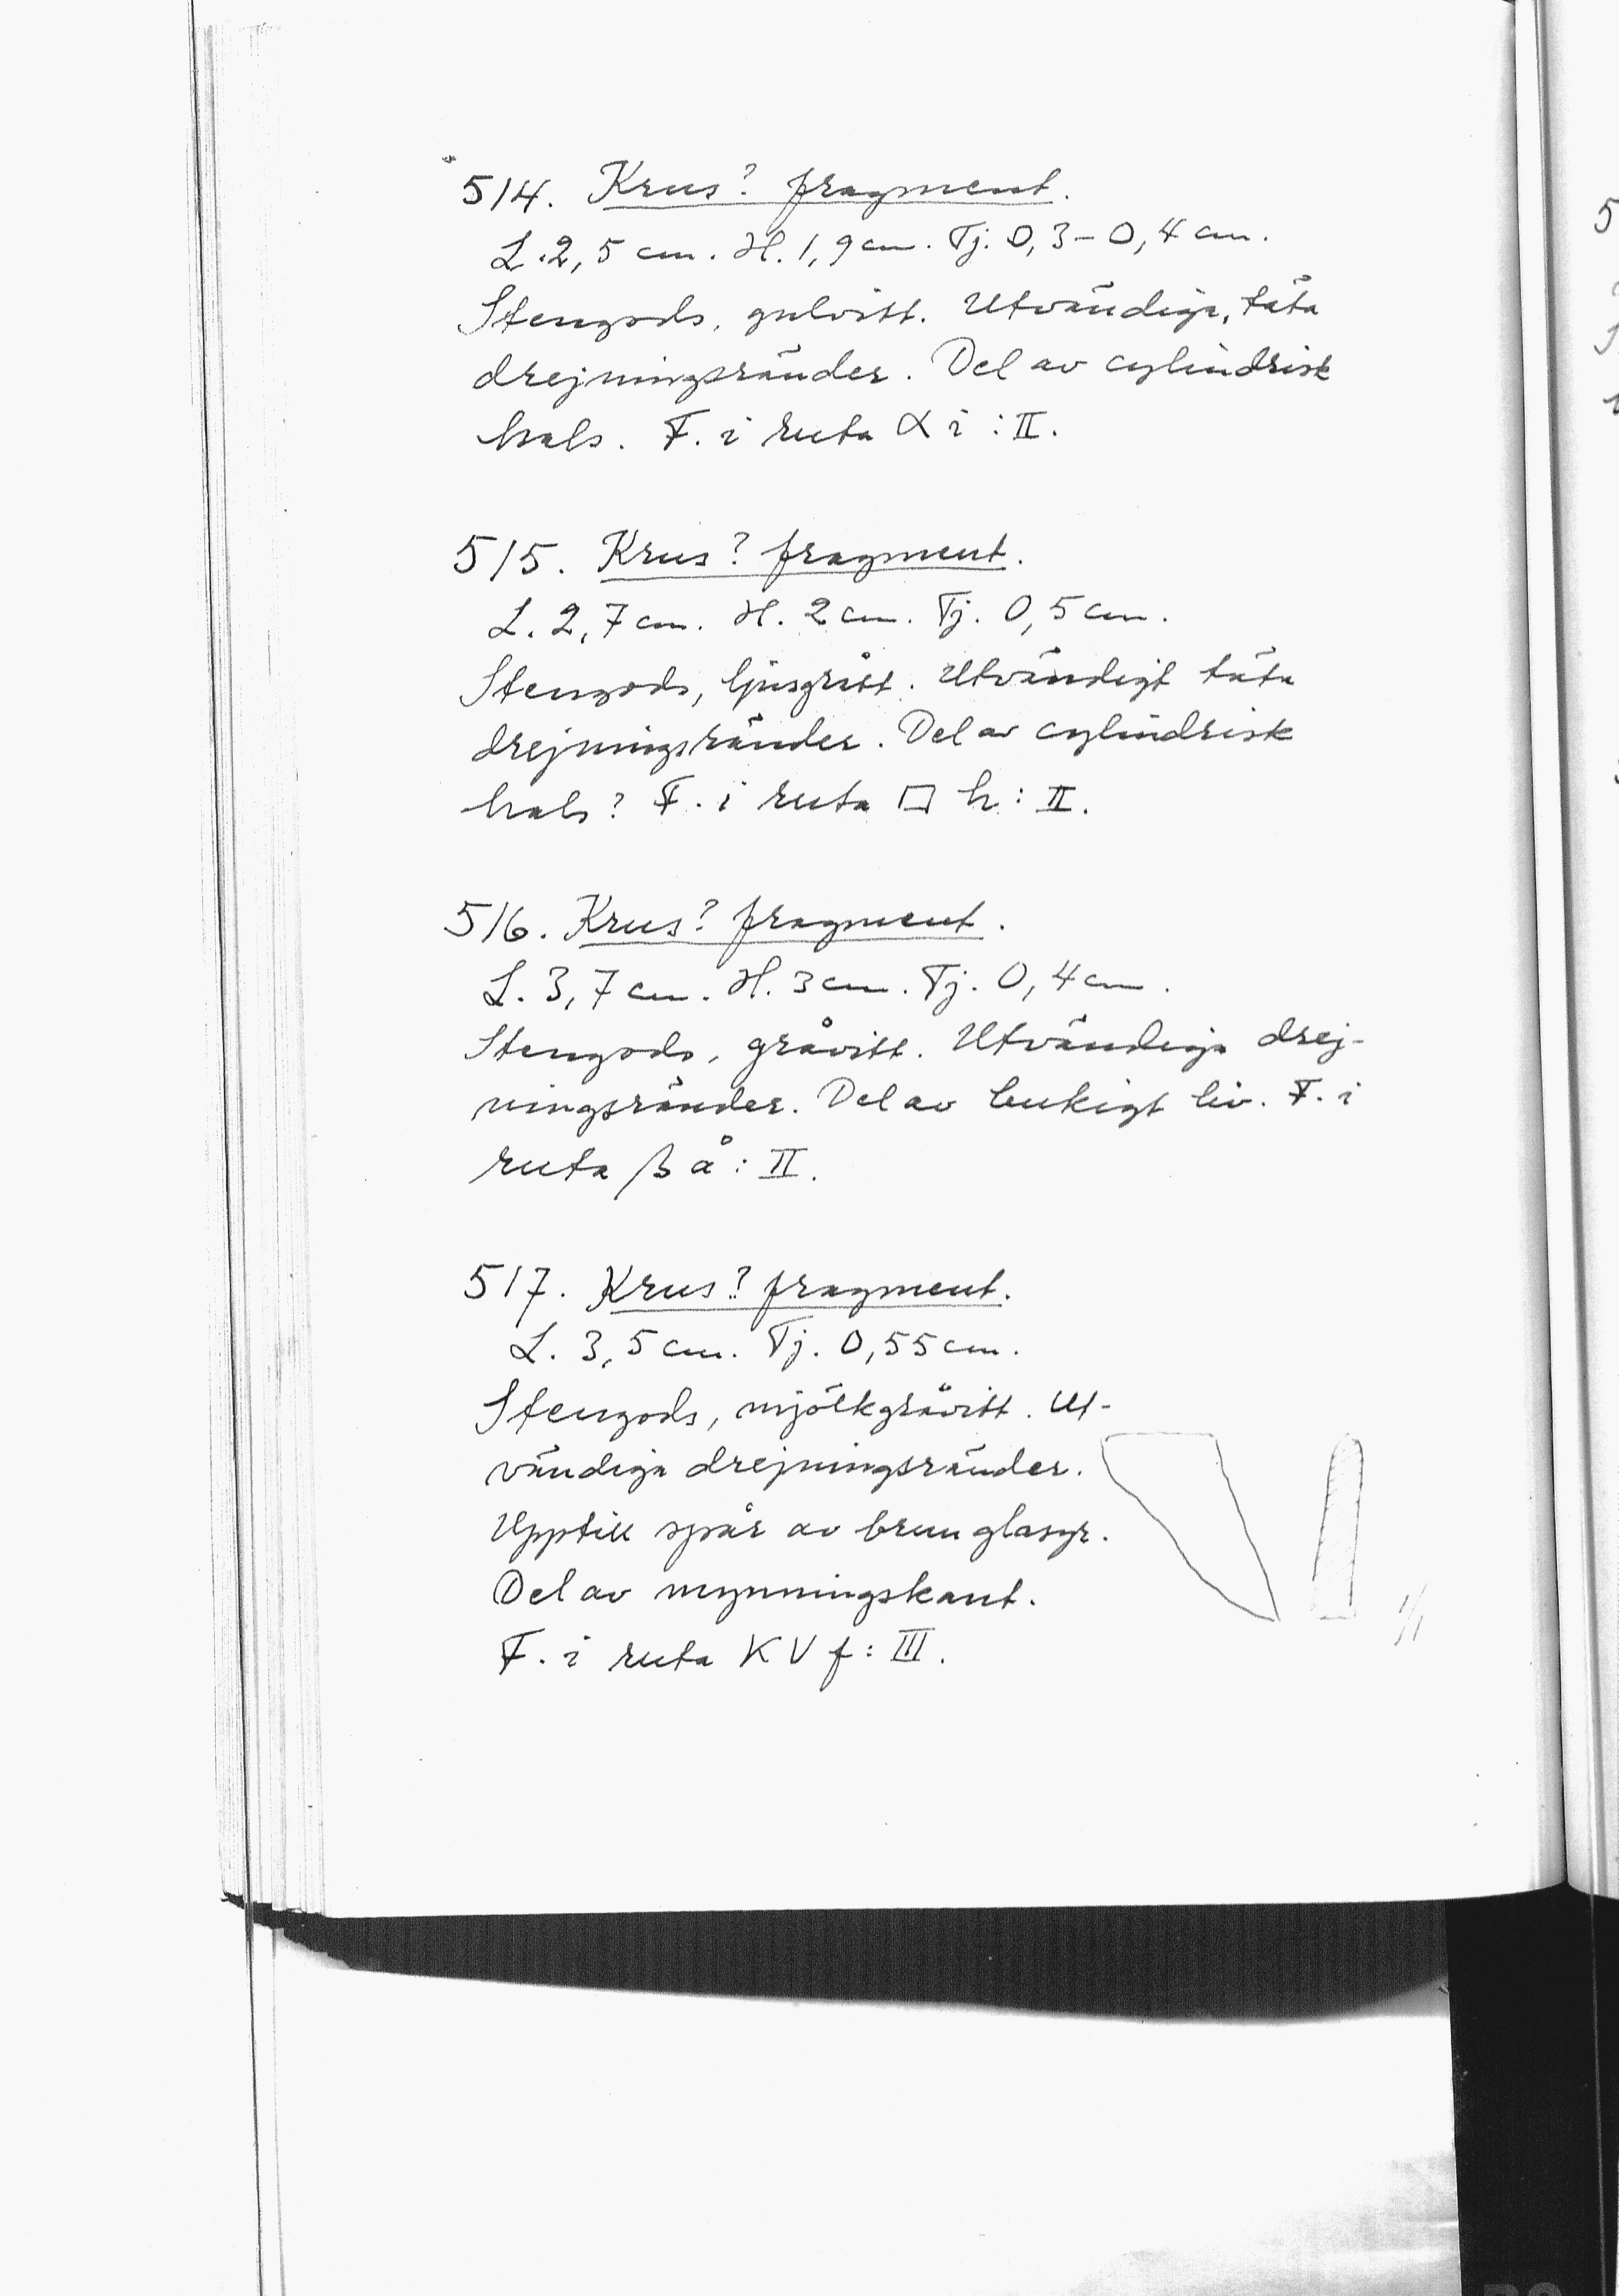 514. Krus? fragment.
L. 2,5 cm. H. 1,9 cm. Tj. 0,3-0,4 cm.
Stengods, gulvitt. Utvändiga, täta
drejningsränder. Del av cylindrisk
hals. F. i ruta α i : II.
515. Krus? fragment.
L. 2,7 cm. H. 2 cm. Tj. 0,5 cm.
Stengods, ljusgrått. Utvändigt täta
drejningsränder. Del av cylindrisk
hals? F. i ruta □ h : II.
516. Krus? fragment.
L. 3,7 cm. H. 3 cm. Tj. 0,4 cm.
Stengods, gråvitt. Utvändiga drej-
ningsränder. Del av bukigt liv. F. i
ruta β å : II.
517. Krus? fragment.
L. 3,5 cm. Tj. 0,55 cm.
Stengods, mjölkgråvitt. Ut-
vändiga drejningsränder.
Upptill spår av brun glasyr.
Del av mynningskant.
F. i ruta K V f : III.
1/1